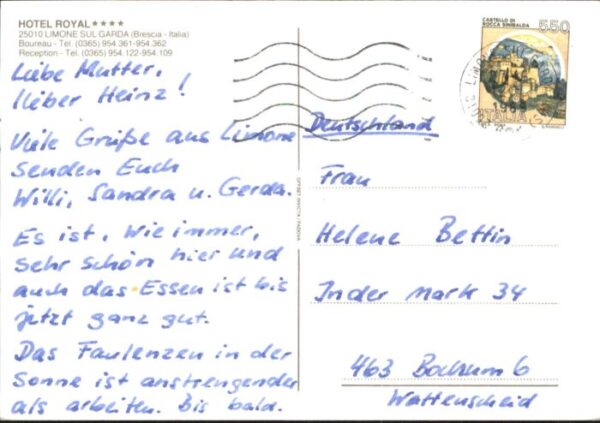 HOTEL ROYAL ★★★★
25010 LIMONE SUL GARDA (Brescia - Italia)
Boureau - Tel. (0365) 954.361-954.362
Reception - Tel. (0365) 954.122-954.109
Liebe Mutter,
lieber Heinz!
Viele Grüße aus Limone
senden Euch
Willi, Sandra u. Gerda.
Es ist, wie immer,
sehr schön hier und
auch das Essen ist bis
jetzt ganz gut.
Das Faulenzen in der
Sonne ist anstrengender
als arbeiten. Bis bald.
CASTELLO DI
ROCCA SINIBALDA
550
ITALIA
LIMONE
Deutschland
Frau
Helene Bettin
In der Mark 34
463 Bochum 6
Wattenscheid